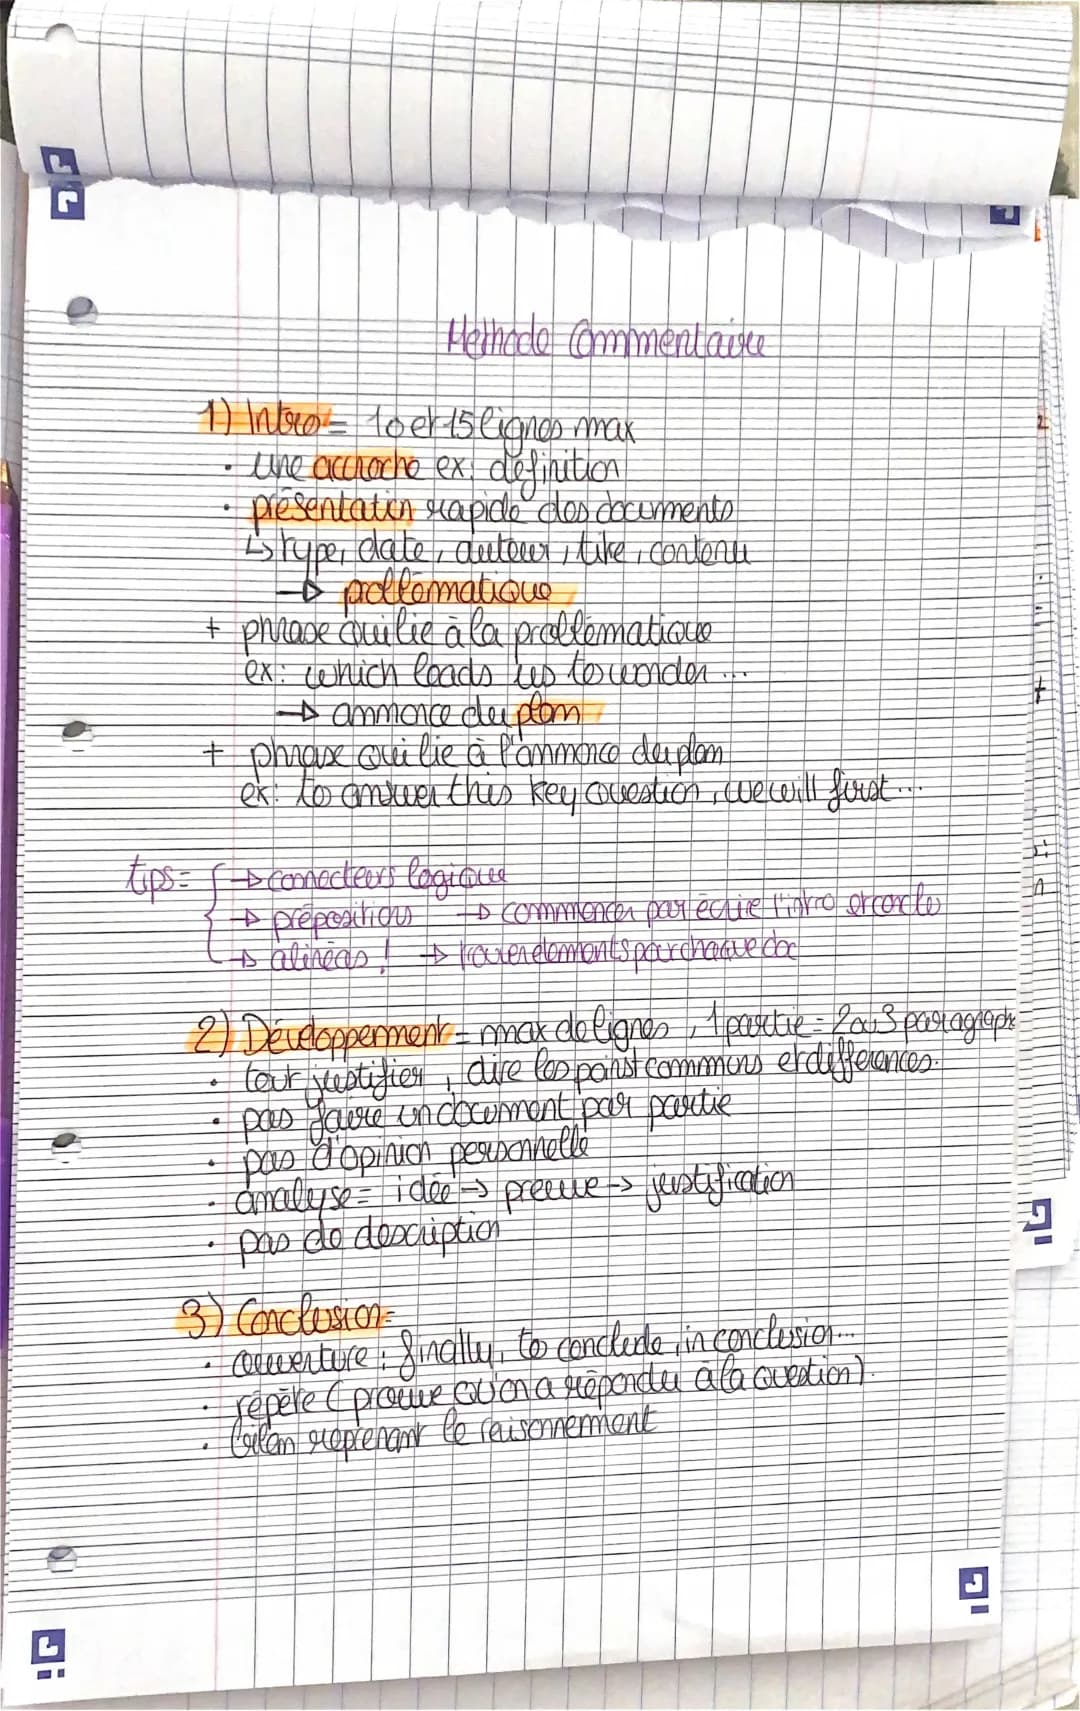 Methode Commentaire
1) Intro = 10 et 15 lignes max
• une accroche ex: définition
• présentation rapide des documents
↳ type, date, auteur, titre, contenu
→ problématique
+ phrase qui lie à la problématique
ex: which leads us to wonder...
→ annonce du plan
+ phrase qui lie à l'annonce du plan
ex: to answer this key question, we will first...
tips = { → connecteurs logique
→ prépositions → commencer par écrire l'intro et conclu
→ alinéas ! → trouver elements pour chaque doc
2) Développement = max de lignes, 1 partie = 2 ou 3 paragraph
• tout justifier, dire les points communs et differences.
• pas faire un document par partie
• pas d'opinion personnelle
• analyse = idée → preuve → justification
• pas de description
3) Conclusion =
• ouverture : finally, to conclude, in conclusion...
• répète (prouve qu'on a répondu à la question).
• bilan reprenant le raisonnement